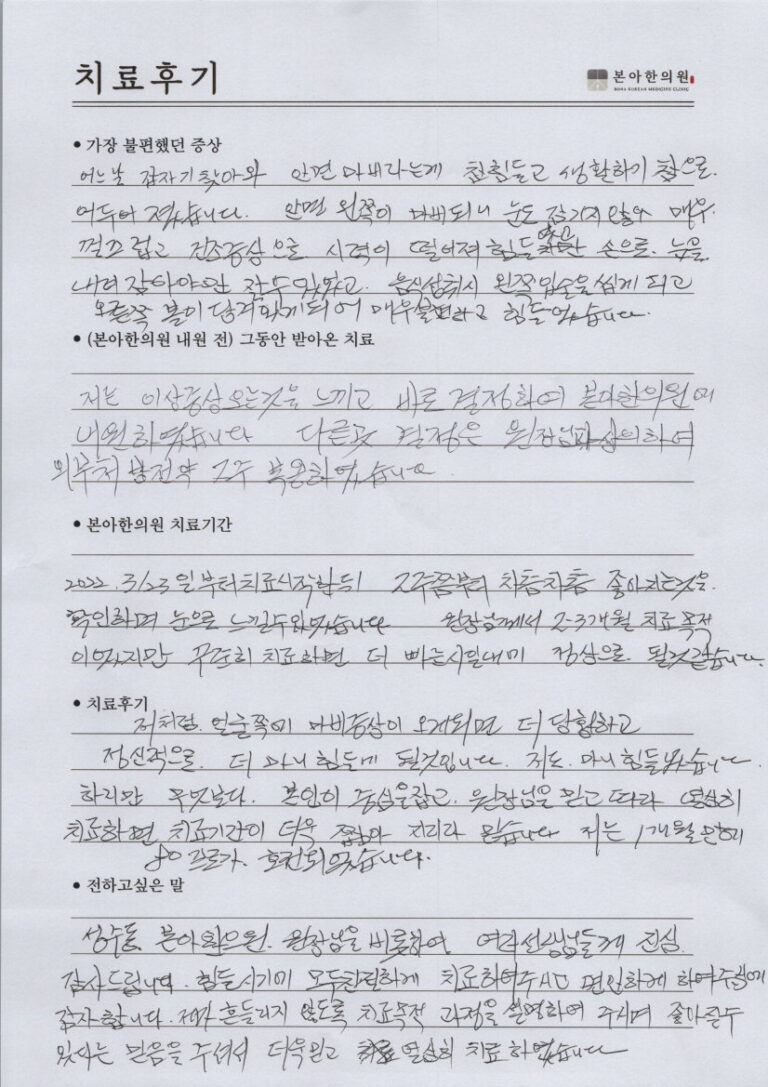 치료후기
본아한의원
BONA KOREAN MEDICINE CLINIC
• 가장 불편했던 증상
어느날 갑자기 찾아와 안면 마비라는게 참 힘들고 생활하기 참으로.
어두어 졌습니다. 안면 왼쪽이 마비되니 눈도 감기지 않아 매우
껄끄럽고 건조증상으로 시력이 떨어져 힘들 손으로 눈을
내려 감아야만 잘수 있었고. 음식섭취시 왼쪽입술을 씹게 되고
오른쪽 볼이 당겨지게되어 매우불편하고 힘들었습니다.
• (본아한의원 내원 전) 그동안 받아온 치료
저는 이상증상 오는것을 느끼고 바로 결정하여 본아한의원에
내원하였습니다 다른곳 결정은 원장님과 상의하여
외부처방전약 2주 복용하였습니다.
• 본아한의원 치료기간
2022. 3/23일부터 치료시작한뒤 2주쯤부터 차츰차츰 좋아지는것을.
확인하며 눈으로 느낄수 있었습니다 원장님께서 2-3개월 치료 목적
이었지만 꾸준히 치료하면 더 빠른시일내에 정상으로. 될것같습니다.
• 치료후기
저처럼. 얼굴쪽에 마비증상이 오게되면 더 당황하고
정신적으로. 더 마니 힘들게 될것입니다. 저도. 마니 힘들었습니다.
하지만 무엇보다. 본인이 중심을잡고. 원장님을 믿고 따라 열심히
치료하면 치료기간이 더욱 지리라 믿습니다 저는 1개월
80프로가. 호전되었습니다.
• 전하고싶은 말
성수동 본아한의원. 원장님을 비롯하여 여러선생님들께 진심
감사드립니다. 힘들시기에 모두친절하게 치료하여주시고 편안하게 하여주심에
감사합니다. 제가 흔들리지 않도록 치료목적 과정을 설명하여 주시며 좋아질수
있다는 믿음을 주셔서 더욱믿고 열심히 치료하였습니다